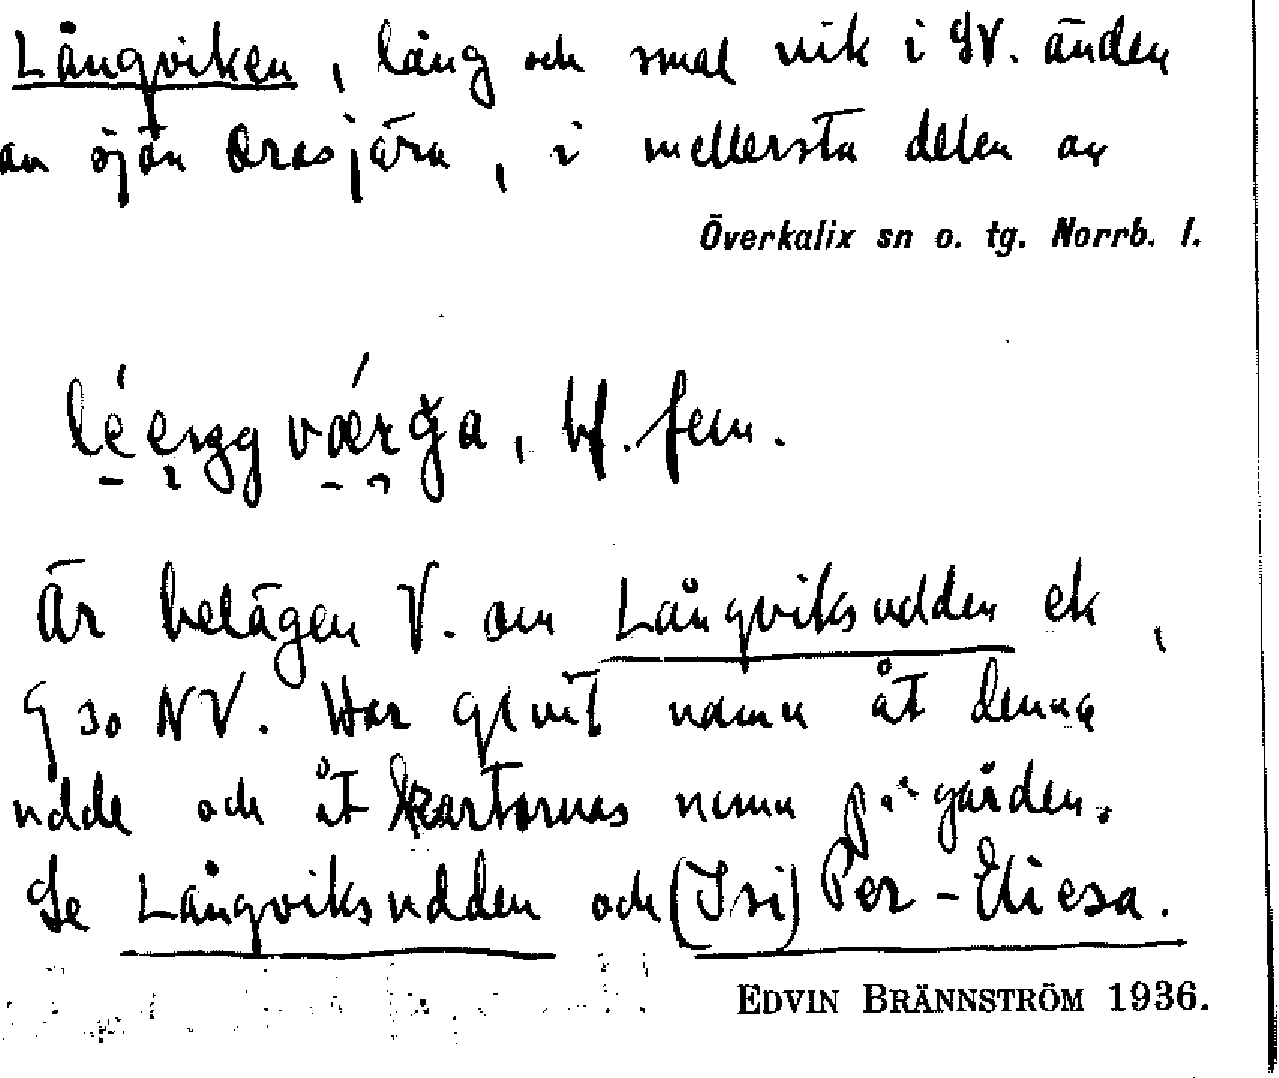 Långviken, lång och smal vik i SV. änden
av sjön Orasjärv, i mellersta delen av
Överkalix sn o. tg. Norrb. l.
bf. fem.
Är belägen V. om Långviksudden ek,
NV. Har givit namn åt denna
udde och åt kartornas namn på gården.
Se Långviksudden och (Isi) Per-Eliesa.
EDVIN BRÄNNSTRÖM 1936.